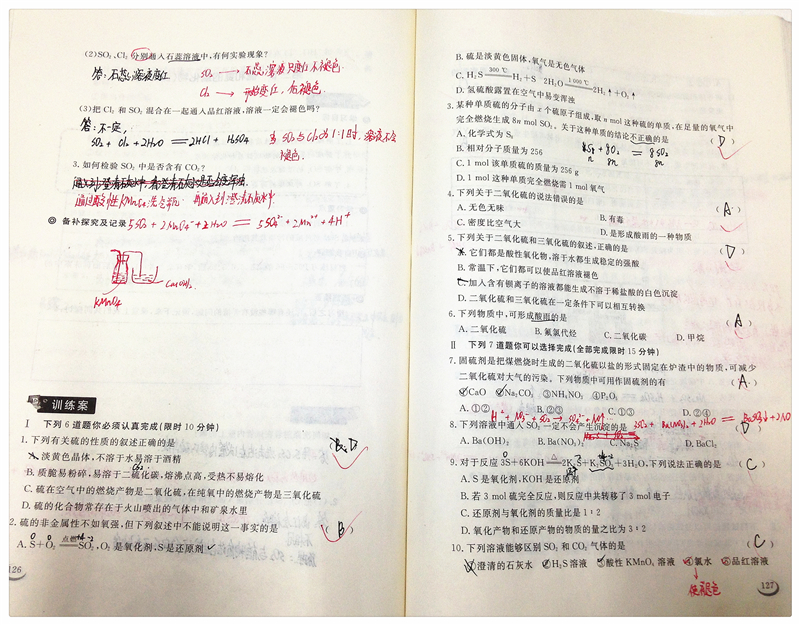 (2)SO₂、Cl₂ 分别通入石蕊溶液中,有何实验现象?
答:石蕊溶液变红
SO₂ → 石蕊溶液只变红不褪色.
Cl₂ → 先变红,后褪色.
(3)把 Cl₂ 和 SO₂ 混合在一起通入品红溶液,溶液一定会褪色吗?
答:不一定,
SO₂ + Cl₂ + 2H₂O = 2HCl + H₂SO₄
当 SO₂与Cl₂为1:1时,溶液不会
褪色.
3. 如何检验 SO₂ 中是否含有 CO₂?
通过酸性KMnO₄ 再通入到澄清石灰水中
◎ 备补探究及记录
5SO₂ + 2MnO₄⁻ + 2H₂O = 5SO₄²⁻ + 2Mn²⁺ + 4H⁺
Ca(OH)₂
KMnO₄
训练案
Ⅰ 下列 6 道题你必须认真完成(限时 10 分钟)
1. 下列有关硫的性质的叙述正确的是 (B、D)
A. 淡黄色晶体,不溶于水易溶于酒精
CS₂
B. 质脆易粉碎,易溶于二硫化碳,熔沸点高,受热不易熔化
C. 硫在空气中的燃产物是二氧化硫,在纯氧中的燃烧产物是三氧化硫
D. 硫的化合物常存在于火山喷出的气体中和矿泉水里
2. 硫的非金属性不如氧强,但下列叙述中不能说明这一事实的是 (B)
A. S+O₂ 点燃 SO₂,O₂ 是氧化剂,S 是还原剂 ✓
126
B. 硫是淡黄色固体,氧气是无色气体
C. H₂S 300 ℃ H₂+S 2H₂O 1 000 ℃ 2H₂↑+O₂↑
D. 氢硫酸露置在空气中易变浑浊
3. 某种单质硫的分子由 x 个硫原子组成,取 n mol 这种硫的单质,在足量的氧气中
完全燃烧生成 8n mol SO₂。关于这种单质的结论不正确的是 (D)
A. 化学式为 S₈
S₈ + 8O₂ = 8SO₂
n 8n 8n
B. 相对分子质量为 256
C. 1 mol 该单质硫的质量为 256 g
D. 1 mol 这种单质完全燃烧需 1 mol 氧气
4. 下列关于二氧化硫的说法错误的是 (A)
A. 无色无味 B. 有毒
C. 密度比空气大 D. 是形成酸雨的一种物质
5. 下列关于二氧化硫和三氧化硫的叙述,正确的是 (D)
A. 它们都是酸性氧化物,溶于水都生成稳定的强酸
B. 常温下,它们都可以使品红溶液褪色
C. 加入含有钡离子的溶液都能生成不溶于稀盐酸的白色沉淀
D. 二氧化硫和三氧化硫在一定条件下可以相互转换
6. 下列物质中,可形成酸雨的是 (A)
A. 二氧化硫 B. 氟氯代烃 C. 二氧化碳 D. 甲烷
Ⅱ 下列 7 道题你可以选择完成(全部完成限时 15 分钟)
7. 固硫剂是把煤燃烧时生成的二氧化硫以盐的形式固定在炉渣中的物质,可减少
二氧化硫对大气的污染。下列物质中可用作固硫剂的有 (A)
①CaO ②Na₂CO₃ ③NH₄NO₃ ④P₂O₅
A. ①② B. ②③ C. ①③ D. ②④
8. 下列溶液中通入 SO₂ 一定不会产生沉淀的是 (D)
A. Ba(OH)₂ B. Ba(NO₃)₂ C. Na₂S D. BaCl₂
9. 对于反应 3S+6KOH △ 2K₂S+K₂SO₃+3H₂O,下列说法正确的是 (C)
A. S 是氧化剂,KOH 是还原剂
B. 若 3 mol 硫完全反应,则反应中共转移了 3 mol 电子
C. 还原剂与氧化剂的质量比是 1∶2
D. 氧化产物和还原产物的物质的量之比为 3∶2
10. 下列溶液能够区别 SO₂ 和 CO₂ 气体的是 (C)
①澄清的石灰水 ②H₂S 溶液 ③酸性 KMnO₄ 溶液 ④氯水 ⑤品红溶液
使褪色
127